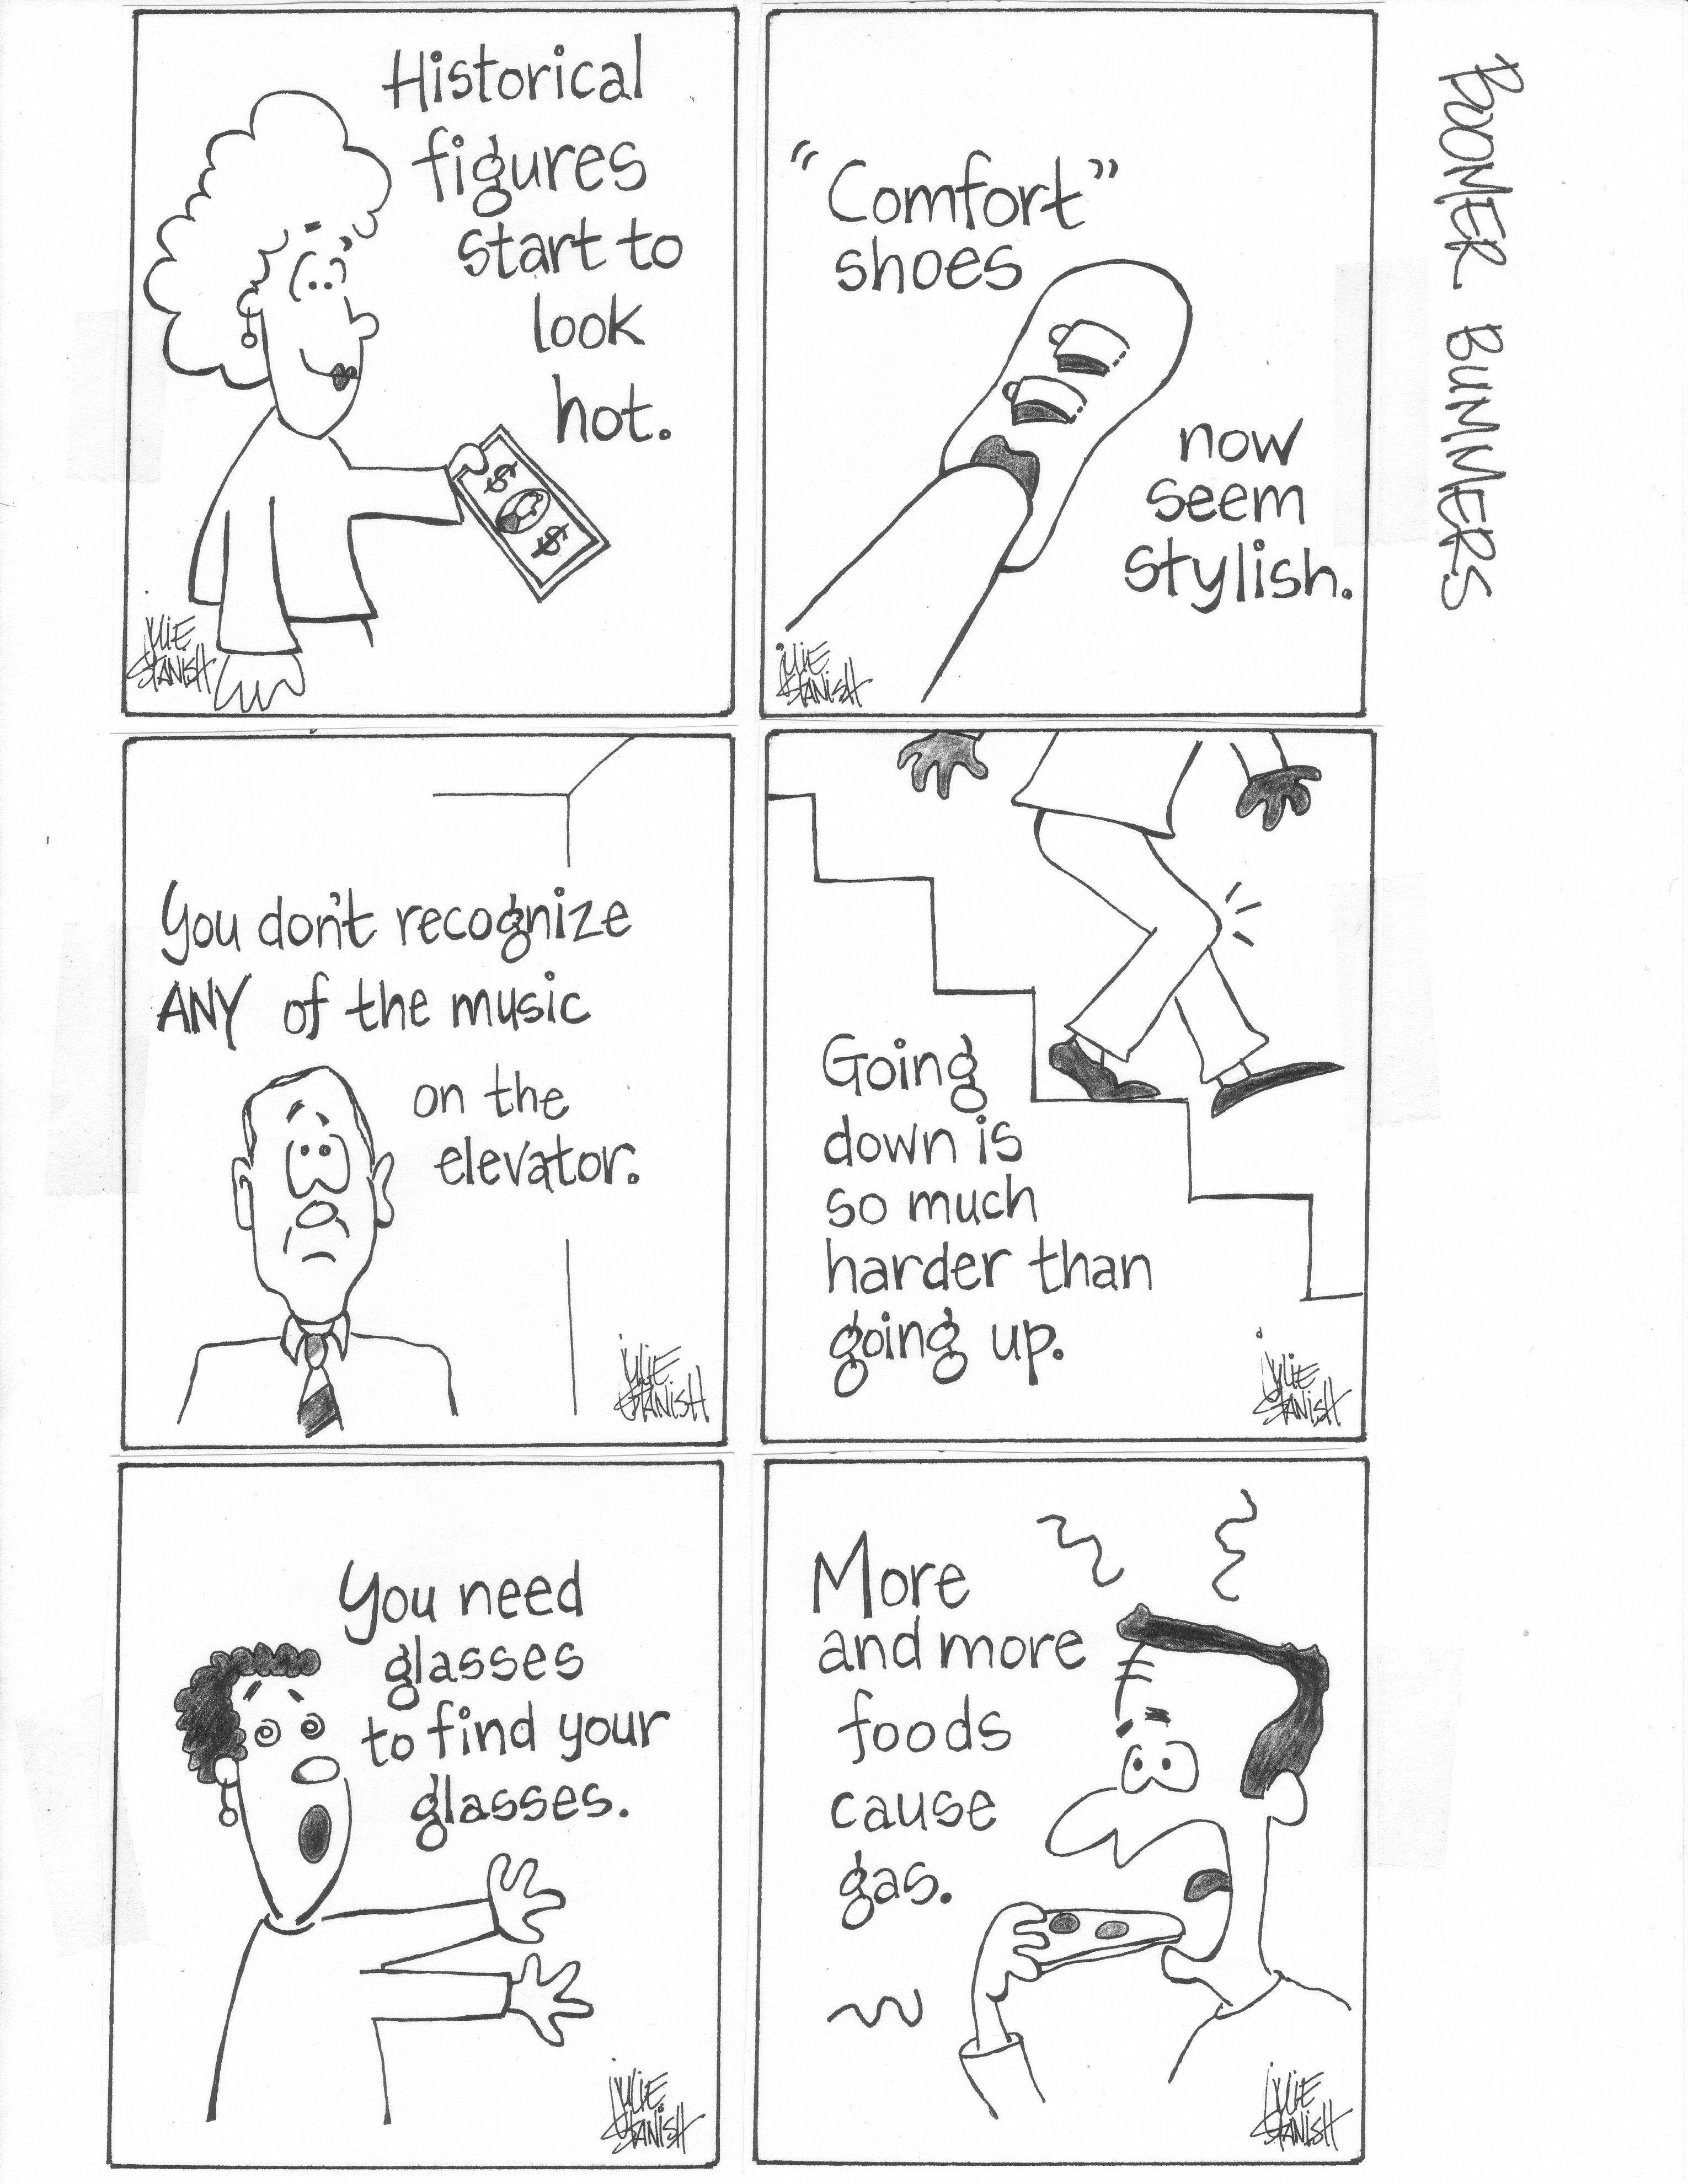 Historical
figures
start to
look
hot.
$
$
JULIE
STANISH
"Comfort"
shoes
now
seem
stylish.
JULIE
STANISH
BOOMER BUMMERS
You don't recognize
ANY of the music
on the
elevator.
JULIE
STANISH
Going
down is
so much
harder than
going up.
JULIE
STANISH
You need
glasses
to find your
glasses.
JULIE
STANISH
More
and more
foods
cause
gas.
JULIE
STANISH